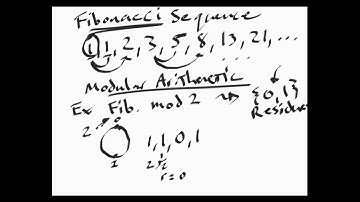 Fibonacci Sequence
1, 1, 2, 3, 5, 8, 13, 21, ...
Modular Arithmetic
Ex Fib. mod 2 ⇝ {0,1}
Residue
2 → 0
1
1, 1, 0, 1
r=0